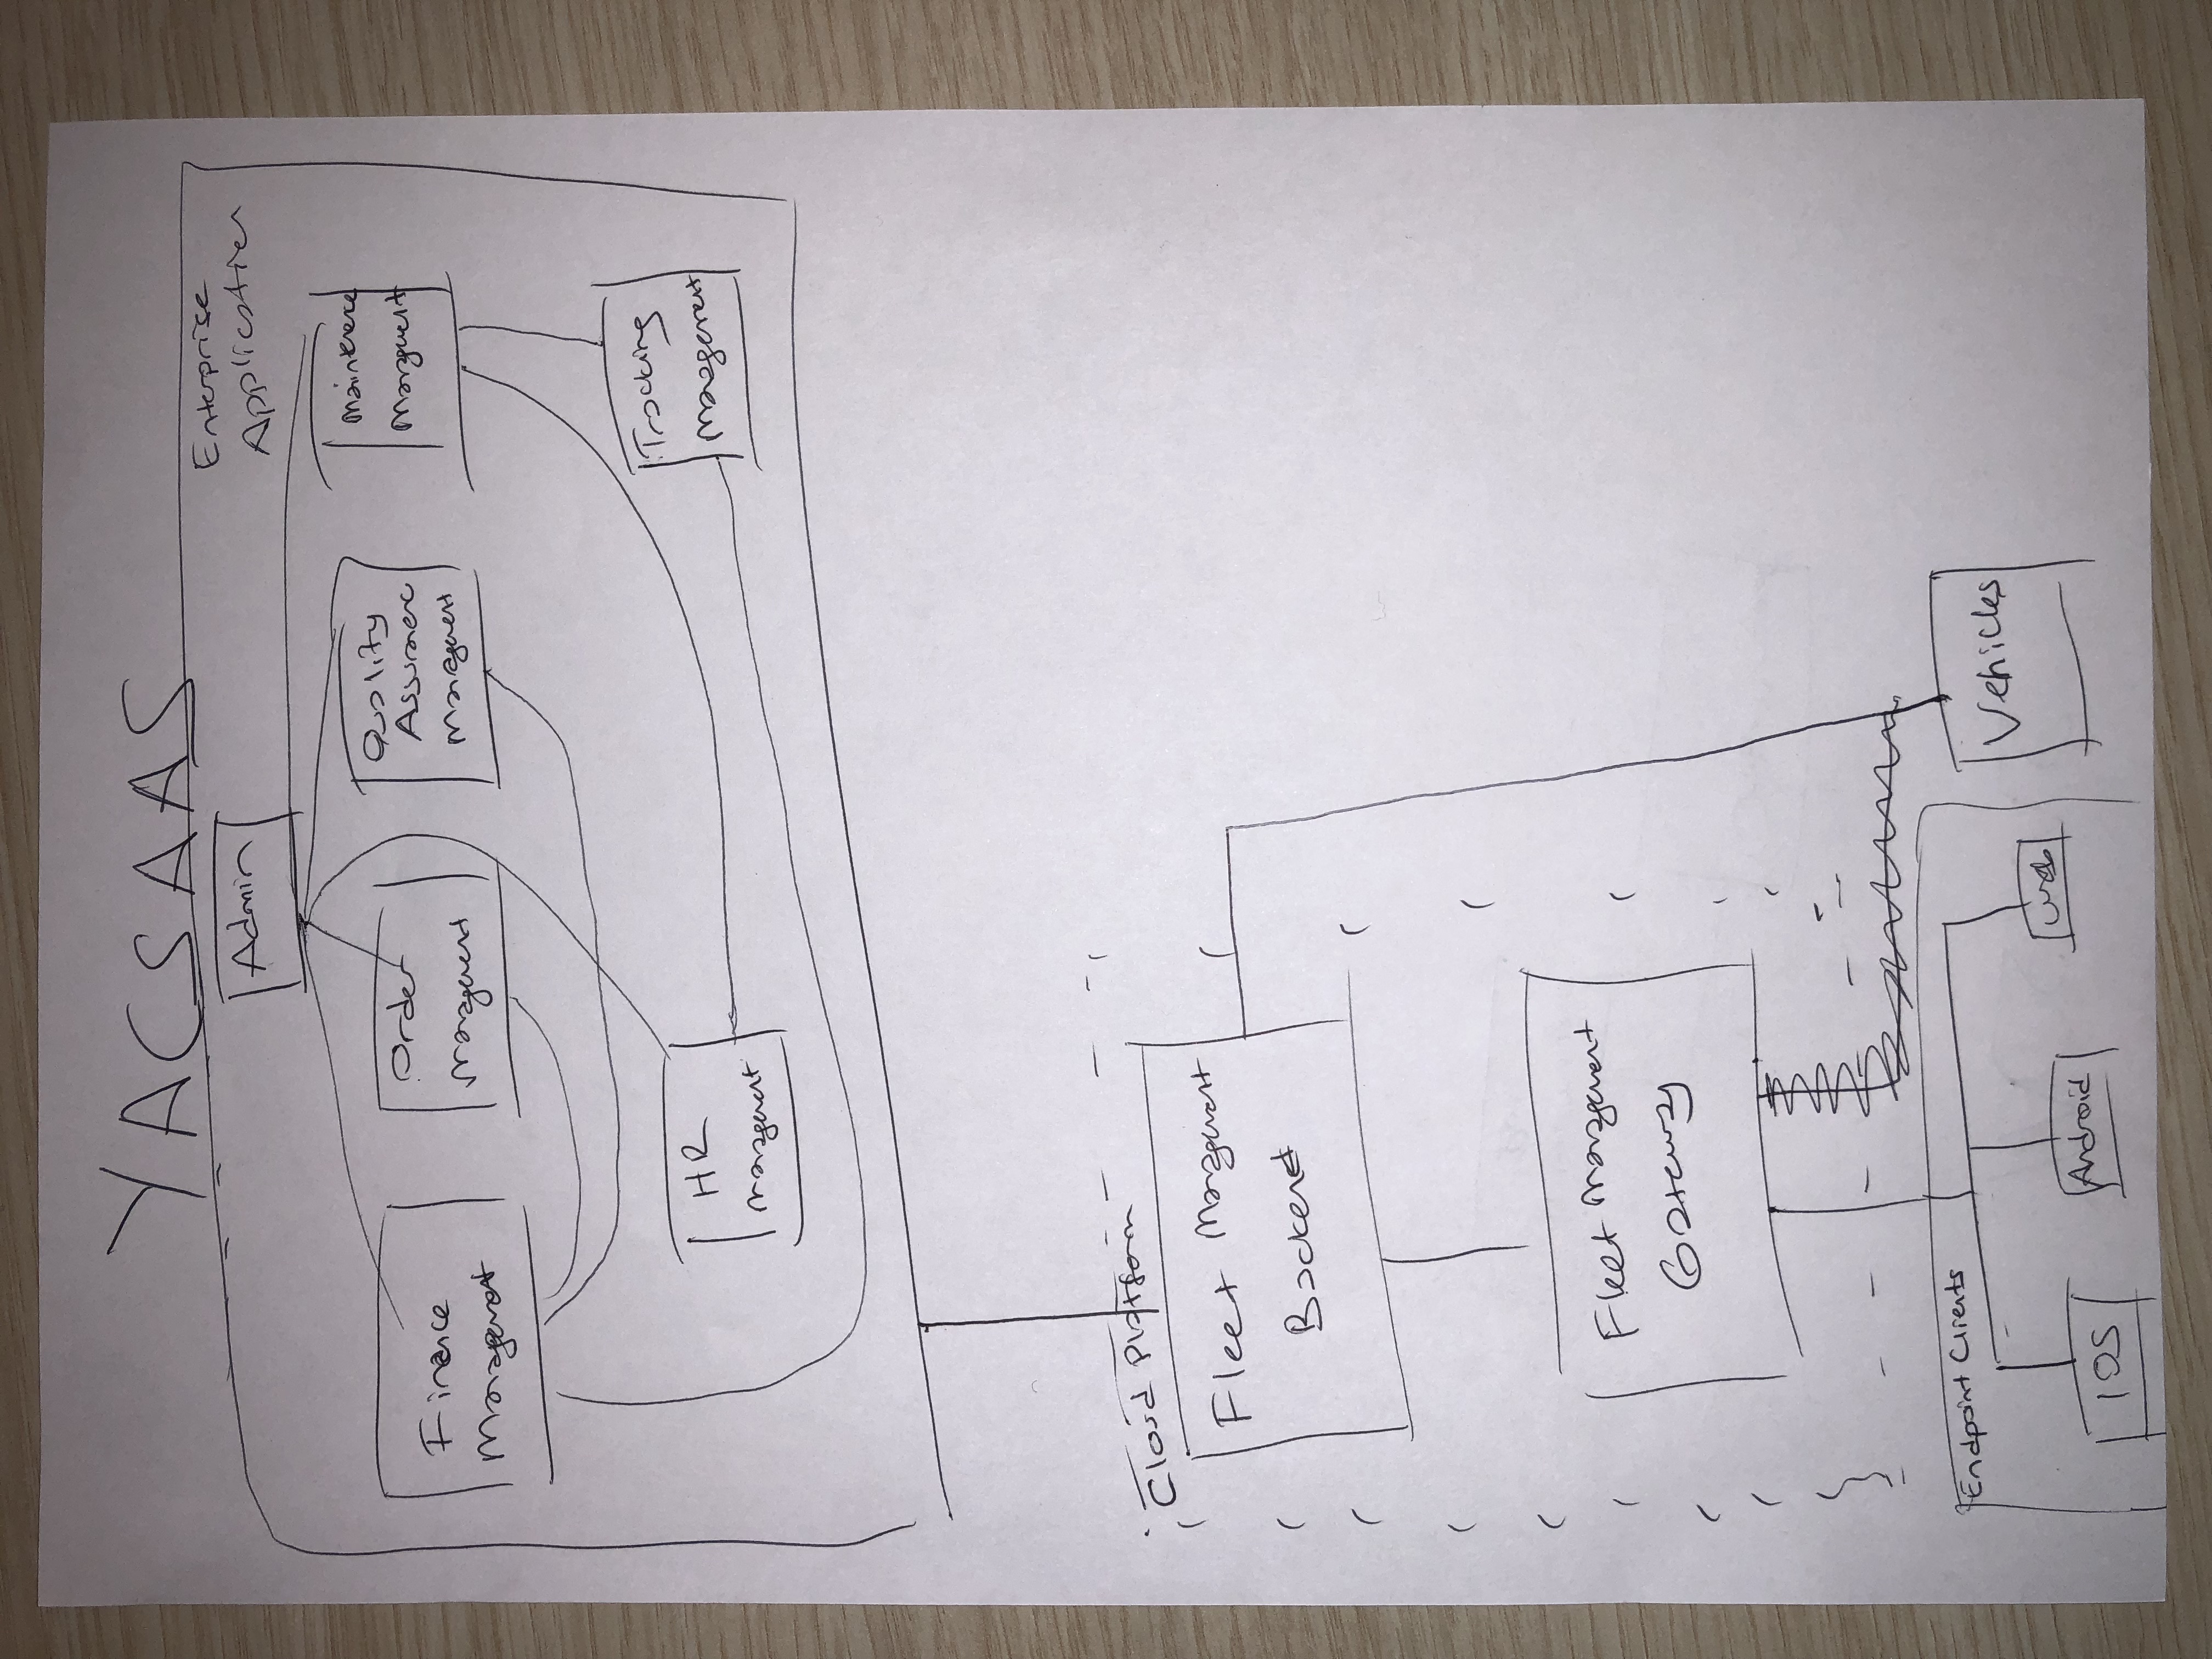 YACSAAS
Enterprise
Application
Admin
Finance
Management
Order
Management
Quality
Assurance
Management
Maintenence
Management
HR
Management
Tracking
Management
Closed Platform
Fleet Management
Backend
Fleet Management
Gateway
Endpoint Clients
IOS
Android
Vehicles